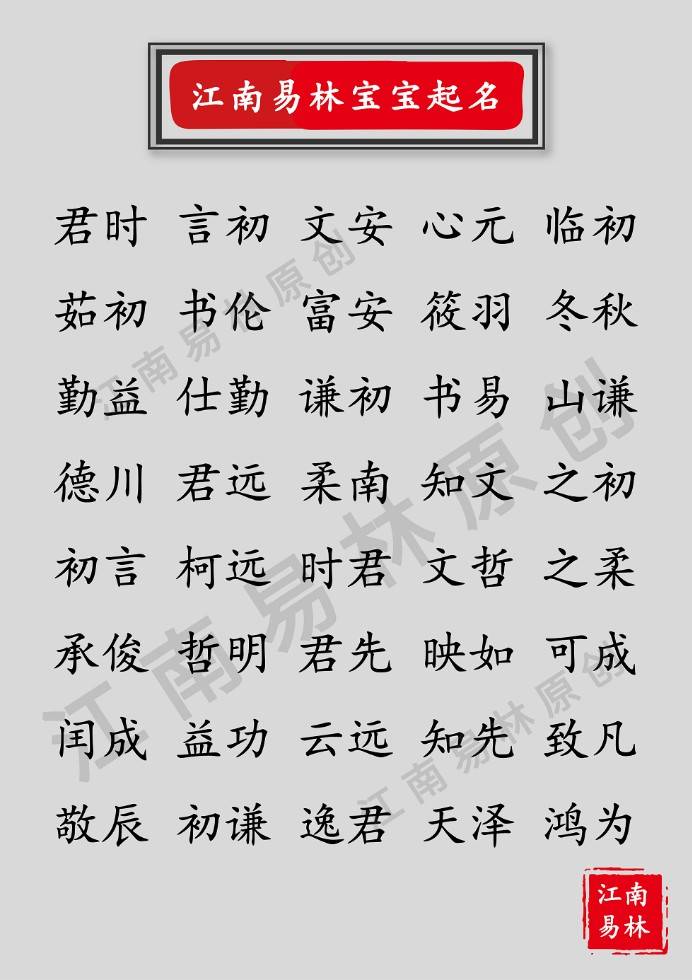 江南易林宝宝起名
君时 言初 文安 心元 临初
茹初 书伦 富安 筱羽 冬秋
勤益 仕勤 谦初 书易 山谦
德川 君远 柔南 知文 之初
初言 柯远 时君 文哲 之柔
承俊 哲明 君先 映如 可成
闰成 益功 云远 知先 致凡
敬辰 初谦 逸君 天泽 鸿为
江南易林原创
江南易林原创
江南易林原创
江南
易林